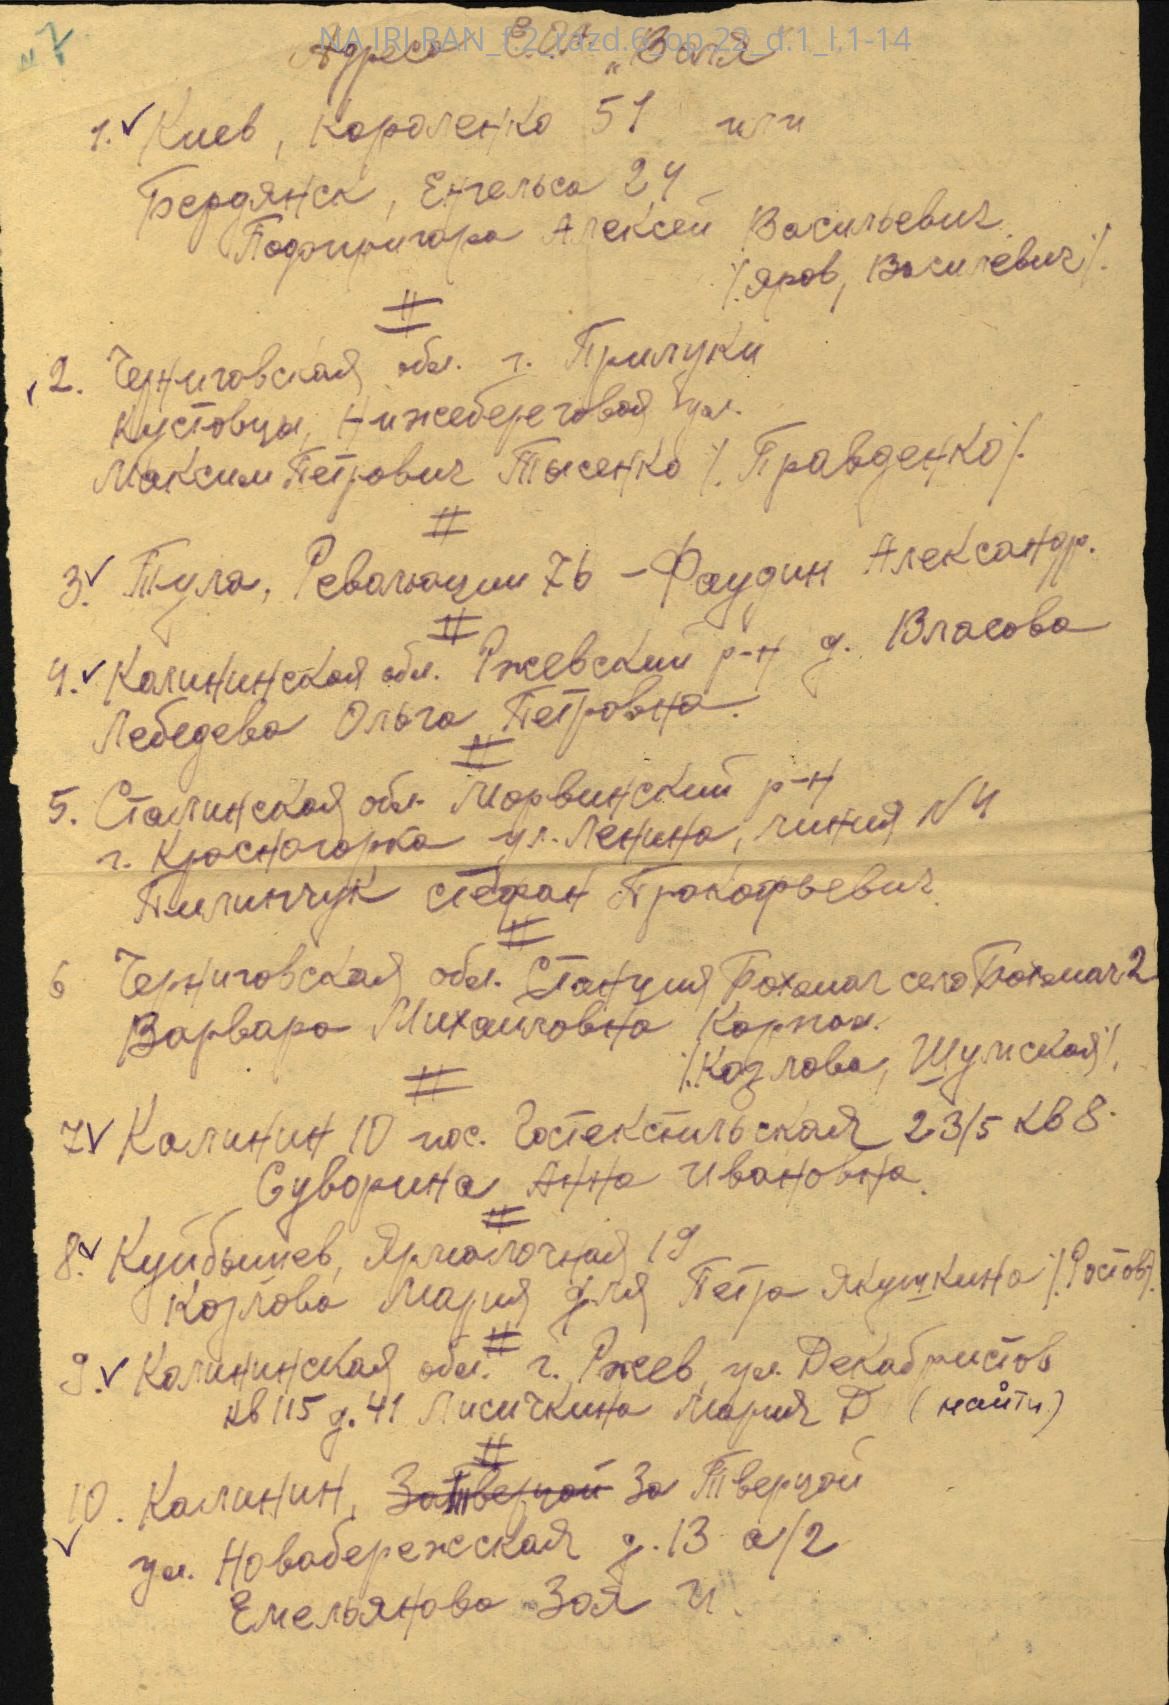 NA IRI RAN_f.2_razd.6_op.22_d.1_l.1-14
Адреса "Валя
1. ✓ Киев, Короленко 51 или
Бердянск, Енгельса 24
Алексей Васильевич
/.Яров, Василевич/.
2. Черниговская обл. г. Прилуки
Кустовцы, Нижебереговая ул.
Максим Петрович Тысенко /.Правденко/.
3. ✓ Тула, Революции 76 – Фаудин Александр.
4. ✓ Калининская обл. Ржевский р-н д. Власово
Лебедева Ольга Петровна.
5. Сталинская обл. р-н
г. Красногорка ул. Ленина, линия N4
Пилипчук Стефан Прокофьевич.
6 Черниговская обл. Станция Бахмач село Бахмач 2
Варвара Михайловна
/.Козлова, Шумская/.
7 ✓ Калинин 10 пос. 23/5 кв 8.
Суворина Анна Ивановна.
8. ✓ Куйбышев, Ярмолочная 19
Козлова Мария для Петра Якушкина /.Ростов/.
9. ✓ Калининская обл. г. Ржев, ул. Декабристов
кв 115 д. 41 Лисичкина Мария Д (найти.)
10. Калинин, За Тверцой За Тверцой
✓ ул. Новабережская д. 13 а/2
Емельянова Зоя И.